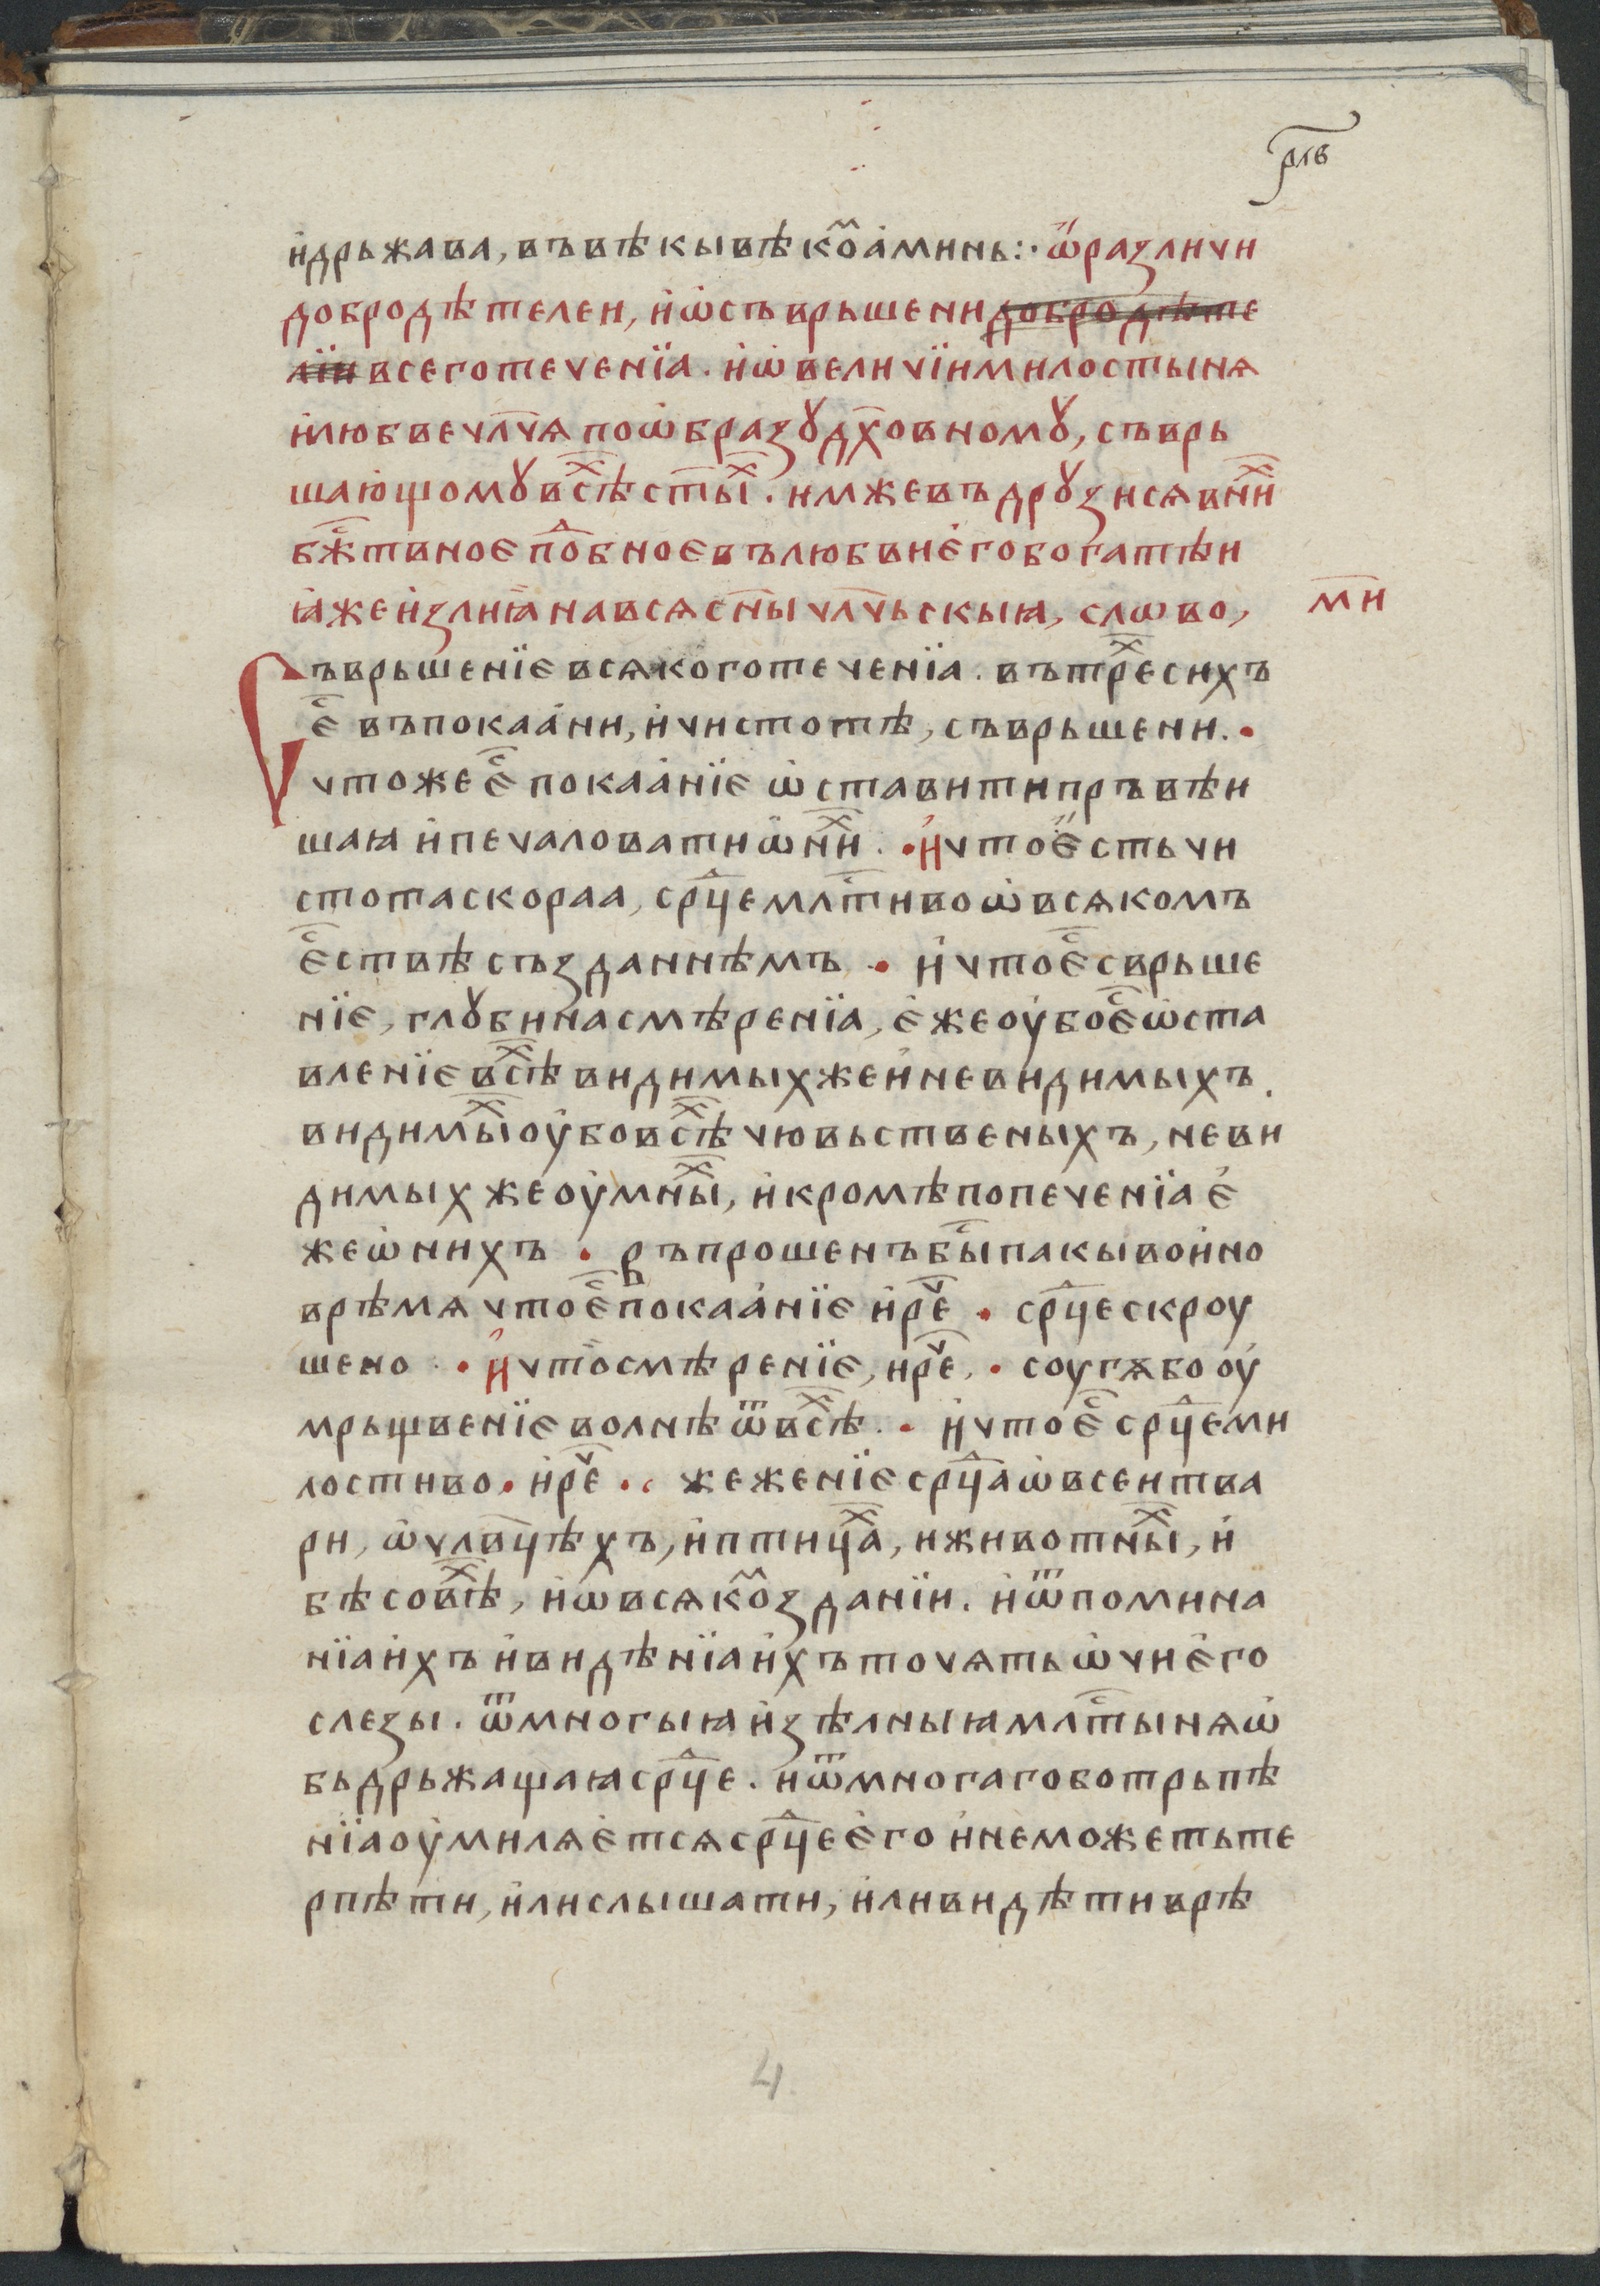 рлв
и҆дрьжава, въвѣкывѣкѡ҇ а҆минь:· ѡ҆различи
добродѣтелеи, и҆ѡ҆съврьшени добродѣте
лїи всеготеченїа. и҆ѡ҆величїимилостыня
и҆любвечл҃чя поѡ҆бразꙋдх҃овномꙋ, съврь
шающомꙋвсѣⷯ ст҃ыⷯ. имжевъдрꙋзисявниⷯ
бжⷭ҇твноє пⷣобноє влюбвиє҆гобогатѣи
ꙗ҆жеи҆злиꙗ҆навсясн҃ы чл҃чьскыѩ, слѡво,
м҃и
Съврьшенїє всякоготеченїа. вътреⷯсихъ
є҆ⷭ въпокаа҆ни, и҆чистотѣ, съврьшени.
чтожеє҆ⷭ покаа҆нїє ѡ҆ставитипръвѣи
шаѩ и҆печаловатиѡ҆ниⷯ. и҆чтоє҆стьчи
стотаскораа, срⷣцемлⷭ҇тивоѡ҆всякомъ
є҆ⷭствѣсъзданнѣмъ. и҆чтоє҆ⷭсврьше
нїє, глꙋбинасмѣренїа, є҆жеоу҆боє҆ⷭѡ҆ста
вленїєвсѣⷯ видимыхжеи҆невидимыхъ.
видимыⷯоу҆бовсѣⷯ чювьственыхъ, неви
димыхжеоу҆мныⷯ, и҆кромѣпопеченїа є҆
жеѡ҆нихъ. въпрошенъбыⷭпакывои҆но
врѣмя чтоє҆ⷭпокаа҆нїє и҆реⷱ. срⷣцескроу
шено. и҆чтосмѣренїє, иреⷱ. соугѫбооу҆
мрьщвенїєволнѣѿвсѣⷯ. и҆чтоє҆ⷭсрⷣцеми
лостиво. и҆реⷱ. жеженїєсрⷣцаѡ҆всеитва
ри, ѡ҆члв҃цѣхъ, и҆птицаⷯ, иживотныⷯ, и҆
бѣсовѣⷯ, и҆ѡ҆всякоⷨзданїи. и҆ѿпомина
нїаи҆хъ и҆видѣнїаи҆хъточятьѡ҆чиє҆го
слезы. ѿмногыѩи҆зѣлныѩмлⷭ҇тыняѡ҆
бьдрьжащаѩсрⷣце. иѿмногаговотрьпѣ
нїаоу҆миляє҆тсясрⷣцеє҆го и҆неможетьте
рпѣти, и҆лислышати, и҆ливидѣтиврѣ
4